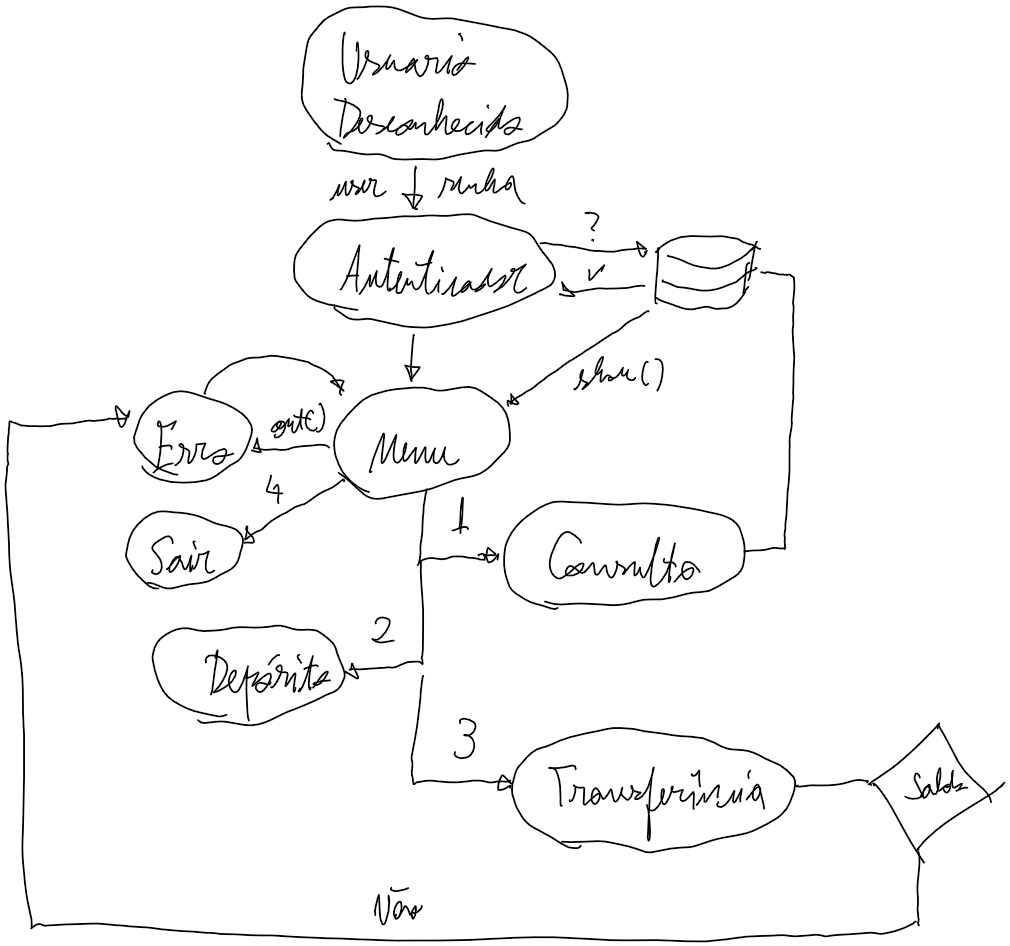 Usuario
Desconhecido
user senha
?
Autenticador
show()
Erro
Menu
4
1
Sair
Consulta
2
Depósito
3
Transferência
Saldo
Não